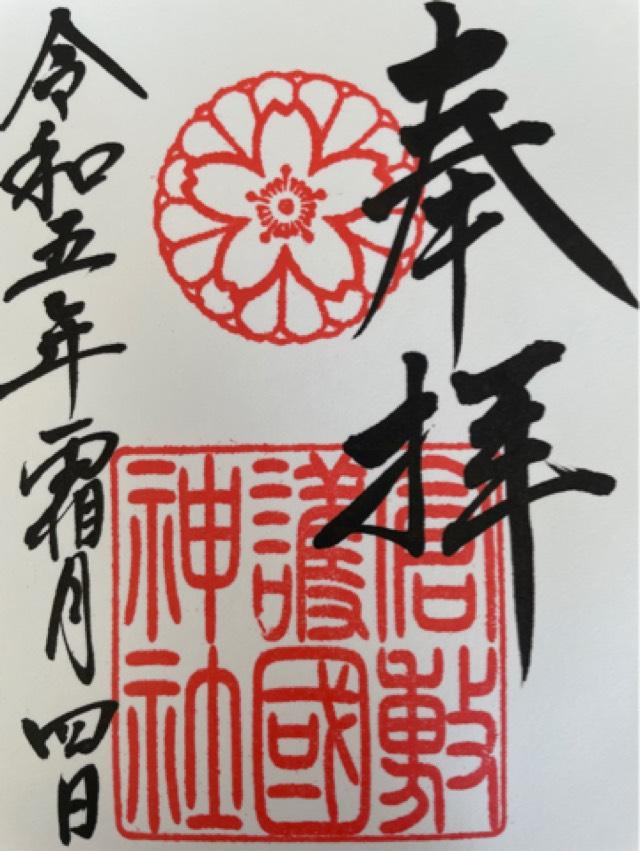 奉拝
倉敷
護國
神社
令和五年霜月四日